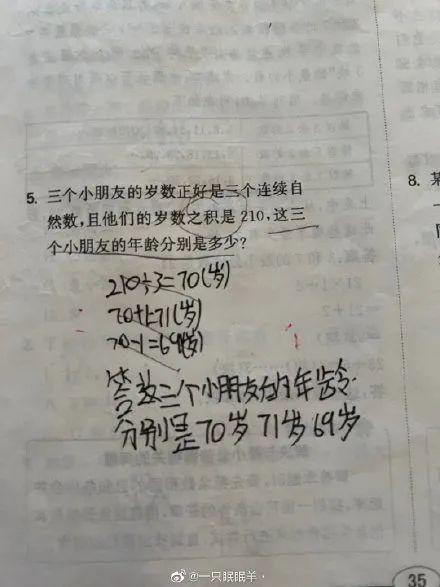 5. 三个小朋友的岁数正好是三个连续自
然数,且他们的岁数之积是 210,这三
个小朋友的年龄分别是多少?
210÷3=70(岁)
70+1=71(岁)
70-1=69(岁)
答数三个小朋友的年龄
分别是70岁 71岁 69岁
8. 某
35
@一只眠眠羊·